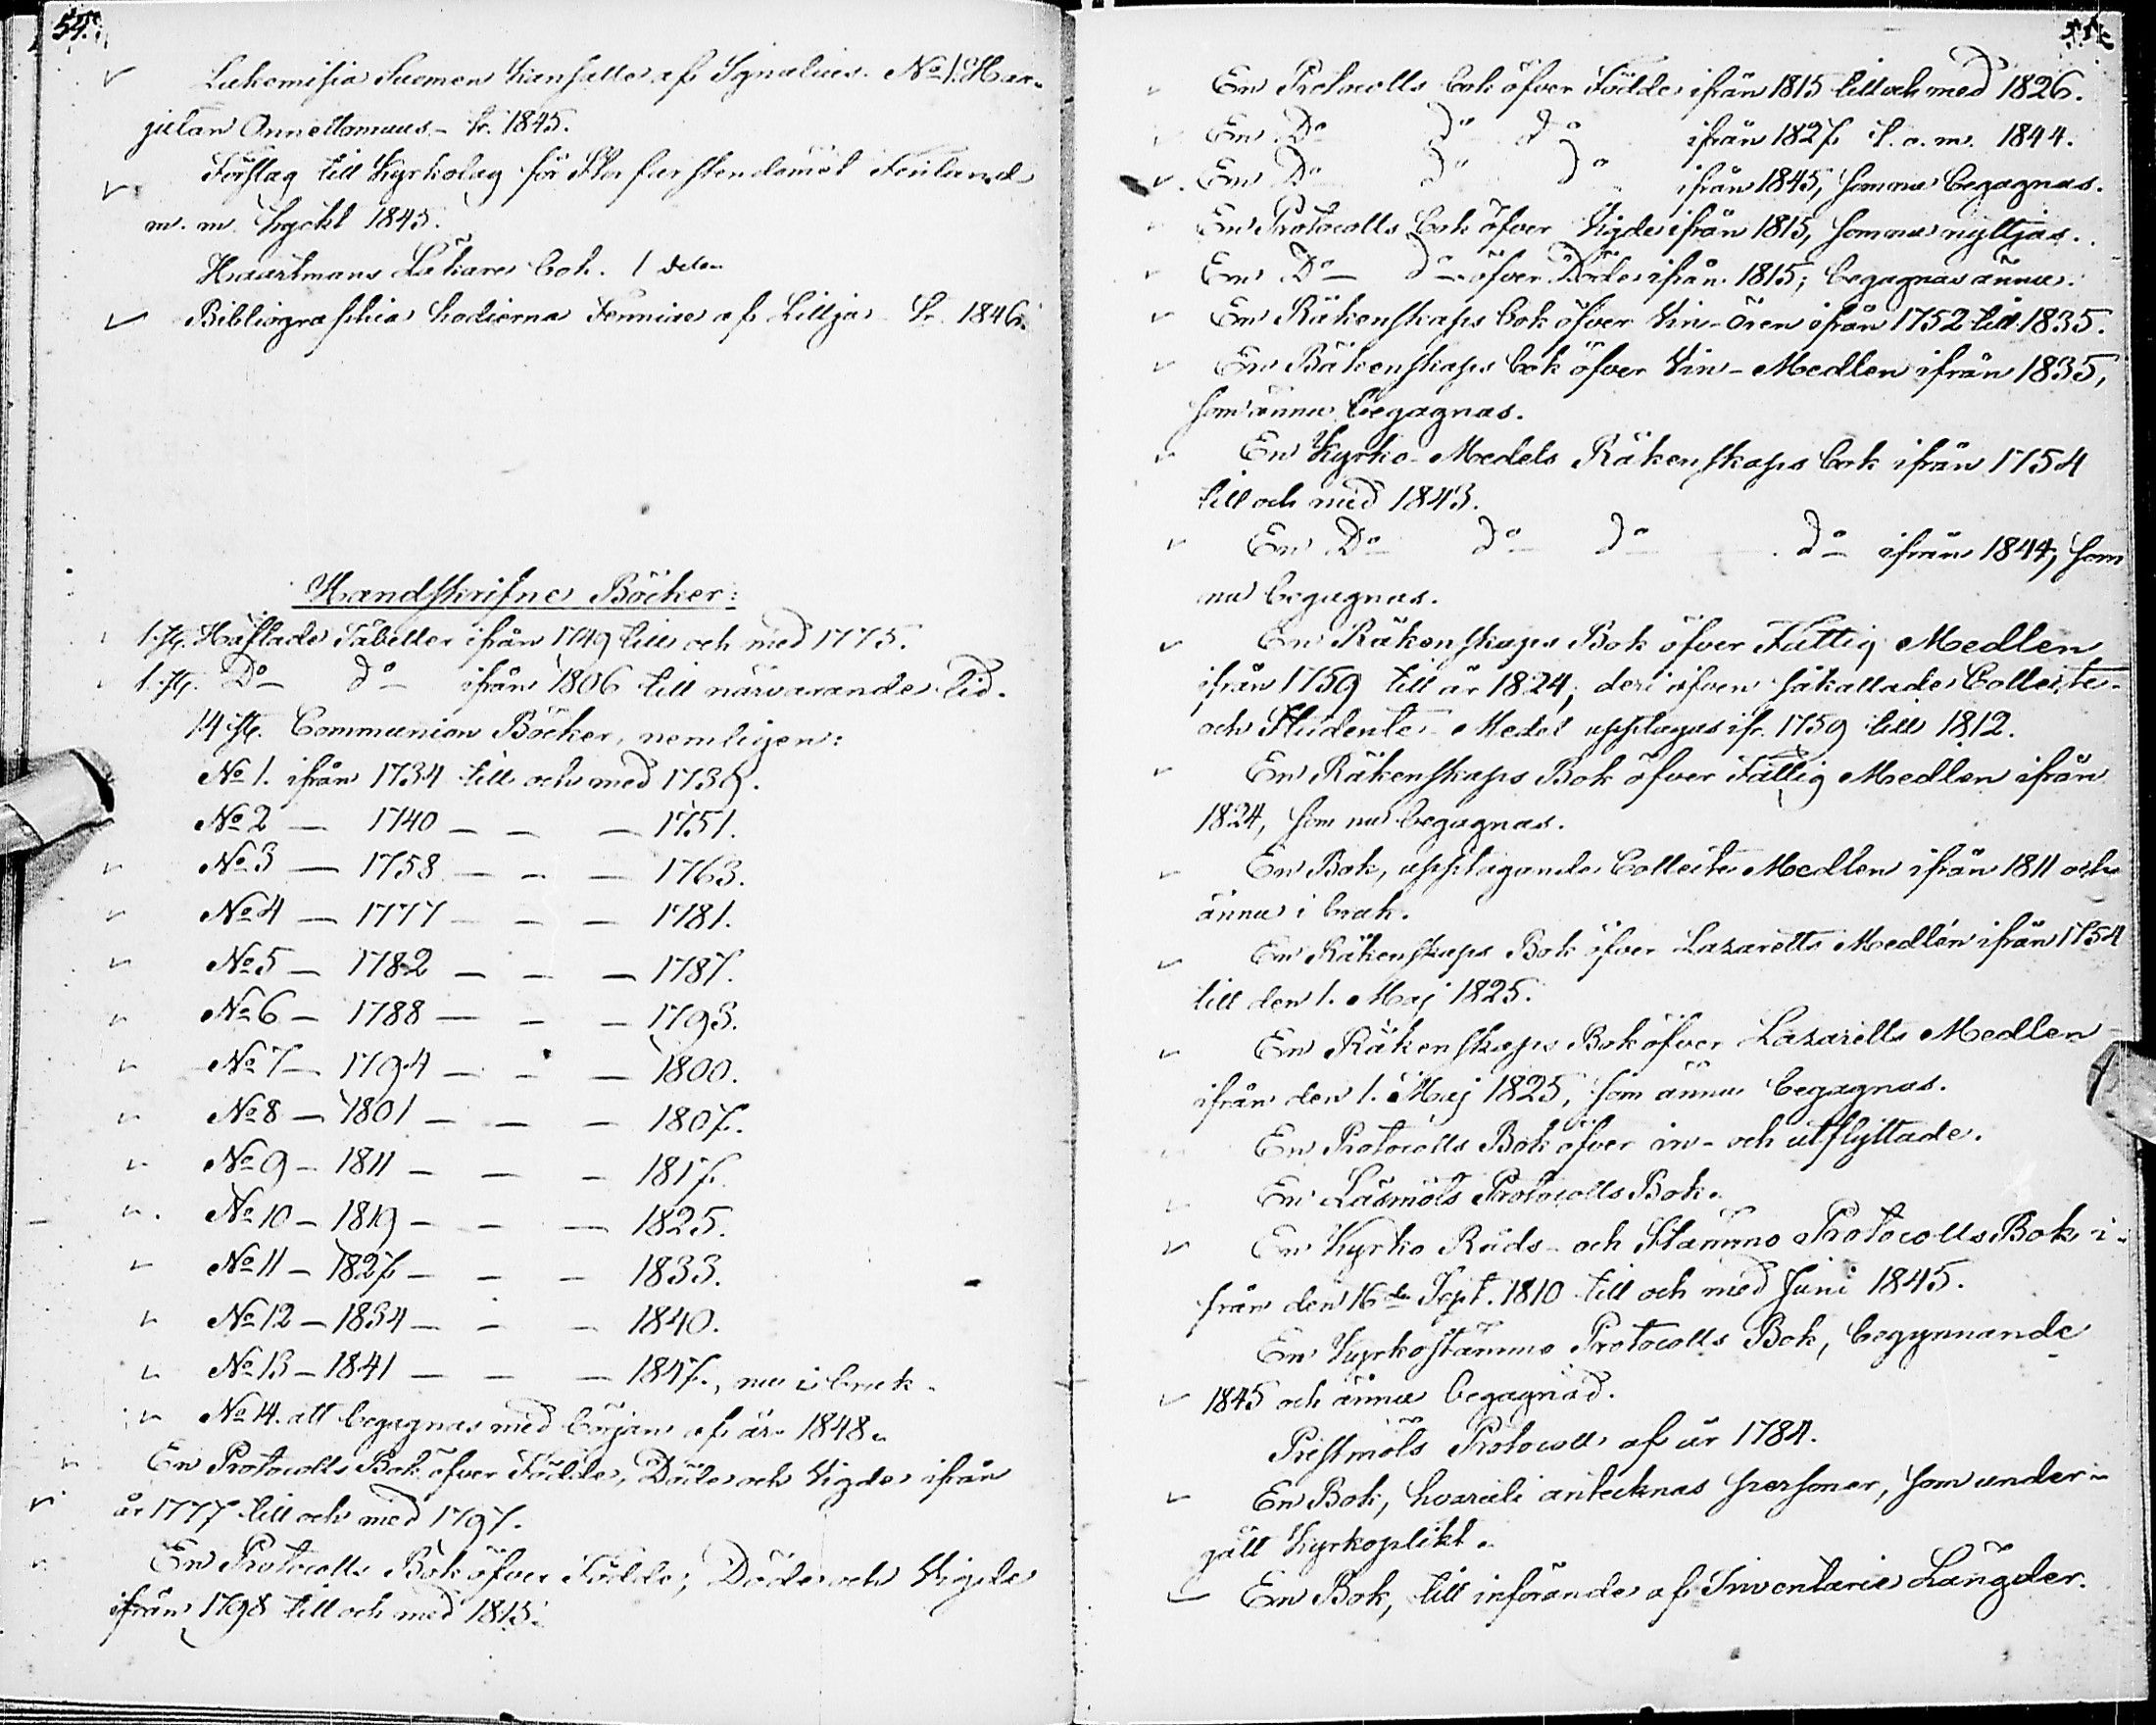 54.
Lukemisia Suomen Kansalle af Ignatius. No 1. Har-
julan Onnettomuus - tr. 1845.
Förslag till Kyrkolag för Storfurstendömet Finland
m. m. tryckt 1845.
Haartmans Läkare bok. 1 delen
Bibliographia hodierna Fenniae af Lillja. tr. 1846.
Handskrifne Böcker:
1. st. Häftade Tabeller ifrån 1749 till och med 1775.
1. st. Do do ifrån 1806 till närvarande tid.
14 st. Communion Böcker, nemligen:
No 1. ifrån 1734 till och med 1739.
No 2 — 1740 — — — 1751.
No 3 — 1758 — — — 1763.
No 4 — 1777 — — — 1781.
No 5 — 1782 — — — 1787.
No 6 — 1788 — — — 1793.
No 7 — 1794 — — — 1800.
No 8 — 1801 — — — 1807.
No 9 — 1811 — — — 1817.
No 10 — 1819 — — — 1825.
No 11 — 1827 — — — 1833.
No 12 — 1834 — — — 1840.
No 13 — 1841 — — — 1847., nu i bruk.
No 14. att begagnas med början af år 1848.
En Protocolls Bok öfver Födde, Döde och Vigde ifrån
år 1777 till och med 1797.
En Protocolls Bok öfver Födde, Döde och Vigde
ifrån 1798 till och med 1815.
55.
En Protocolls bok öfver Födde ifrån 1815 till och med 1826.
En Do do do ifrån 1827 t. o. m. 1844.
En Do do do ifrån 1845, som nu begagnas.
En Protocolls bok öfver Vigde ifrån 1815, som nu nyttjas.
En Do do öfver Döde ifrån 1815; begagnas ännu.
En Räkenskaps bok öfver Vin-ören ifrån 1752 till 1835.
En Räkenskaps bok öfver Vin-Medlen ifrån 1835,
som ännu begagnas.
En Kyrko-Medels Räkenskaps bok ifrån 1754
till och med 1843.
En Do do do do ifrån 1844, som
nu begagnas.
En Räkenskaps Bok öfver Fattig Medlen
ifrån 1759 till år 1824; deri äfven såkallade Collecte-
och Studente-Medel upptagas ifr. 1759 till 1812.
En Räkenskaps Bok öfver Fattig Medlen ifrån
1824, som nu begagnas.
En Bok, upptagande Collecte Medlen ifrån 1811 och
ännu i bruk.
En Räkenskaps Bok öfver Lazaretts Medlen ifrån 1754
till den 1. Maj 1825.
En Räkenskaps Bok öfver Lazaretts Medlen
ifrån den 1. Maj 1825, som ännu begagnas.
En Protocolls Bok öfver in- och utflyttade.
En Läsmöts Protocolls Bok.
En Kyrko Råds- och Stämmo Protocolls Bok i-
från den 16de Sept. 1810 till och med Juni 1845.
En Kyrkostämmo Protocolls Bok, begynnande
1845 och ännu begagnad.
Prestmöts Protocoll af år 1784.
En Bok, hvaruti antecknas personer, som under-
gått Kyrkoplikt.
En Bok, till införande af Inventarie Längder.